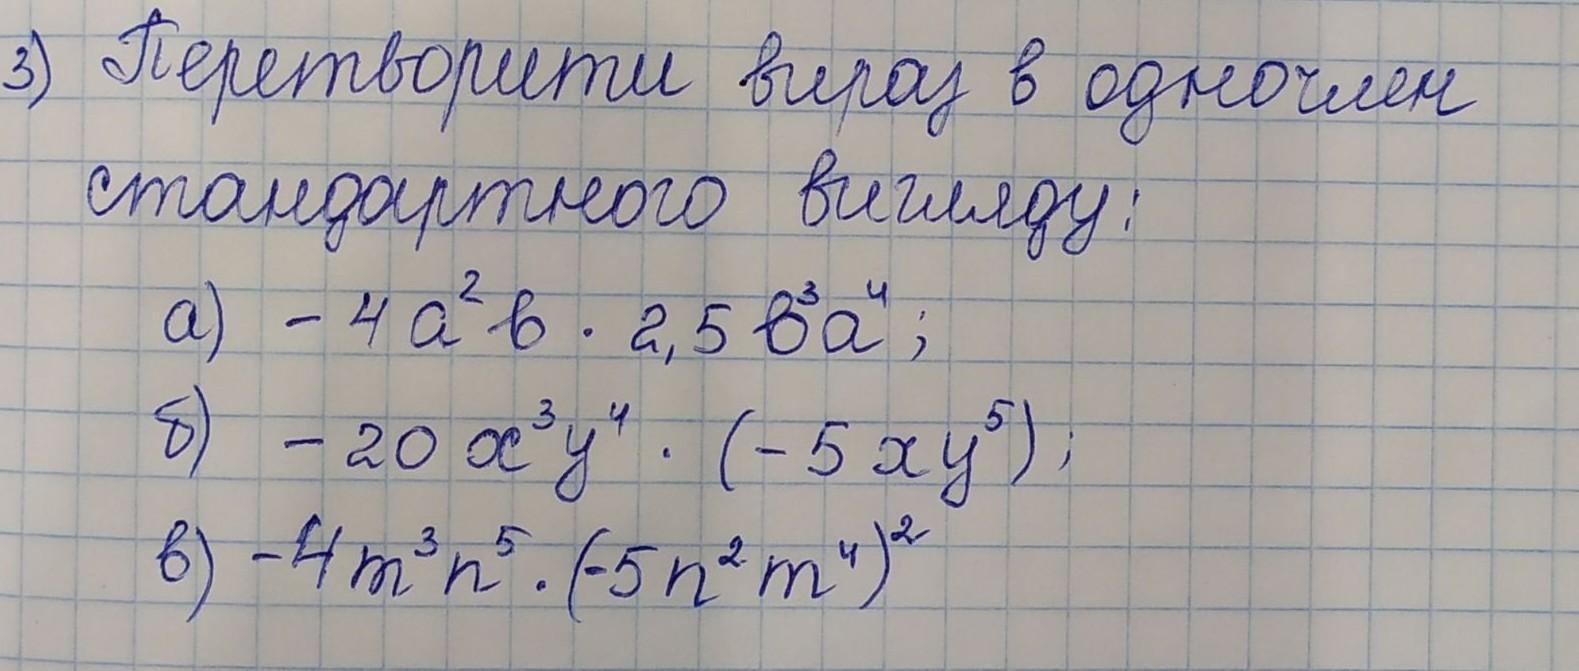 3) Перетворити вираз в одночлен
стандартного вигляду:
а) - 4a²b · 2,5b³a⁴;
б) - 20x³y⁴ · (-5xy⁵);
в) -4m³n⁵·(-5n²m⁴)²